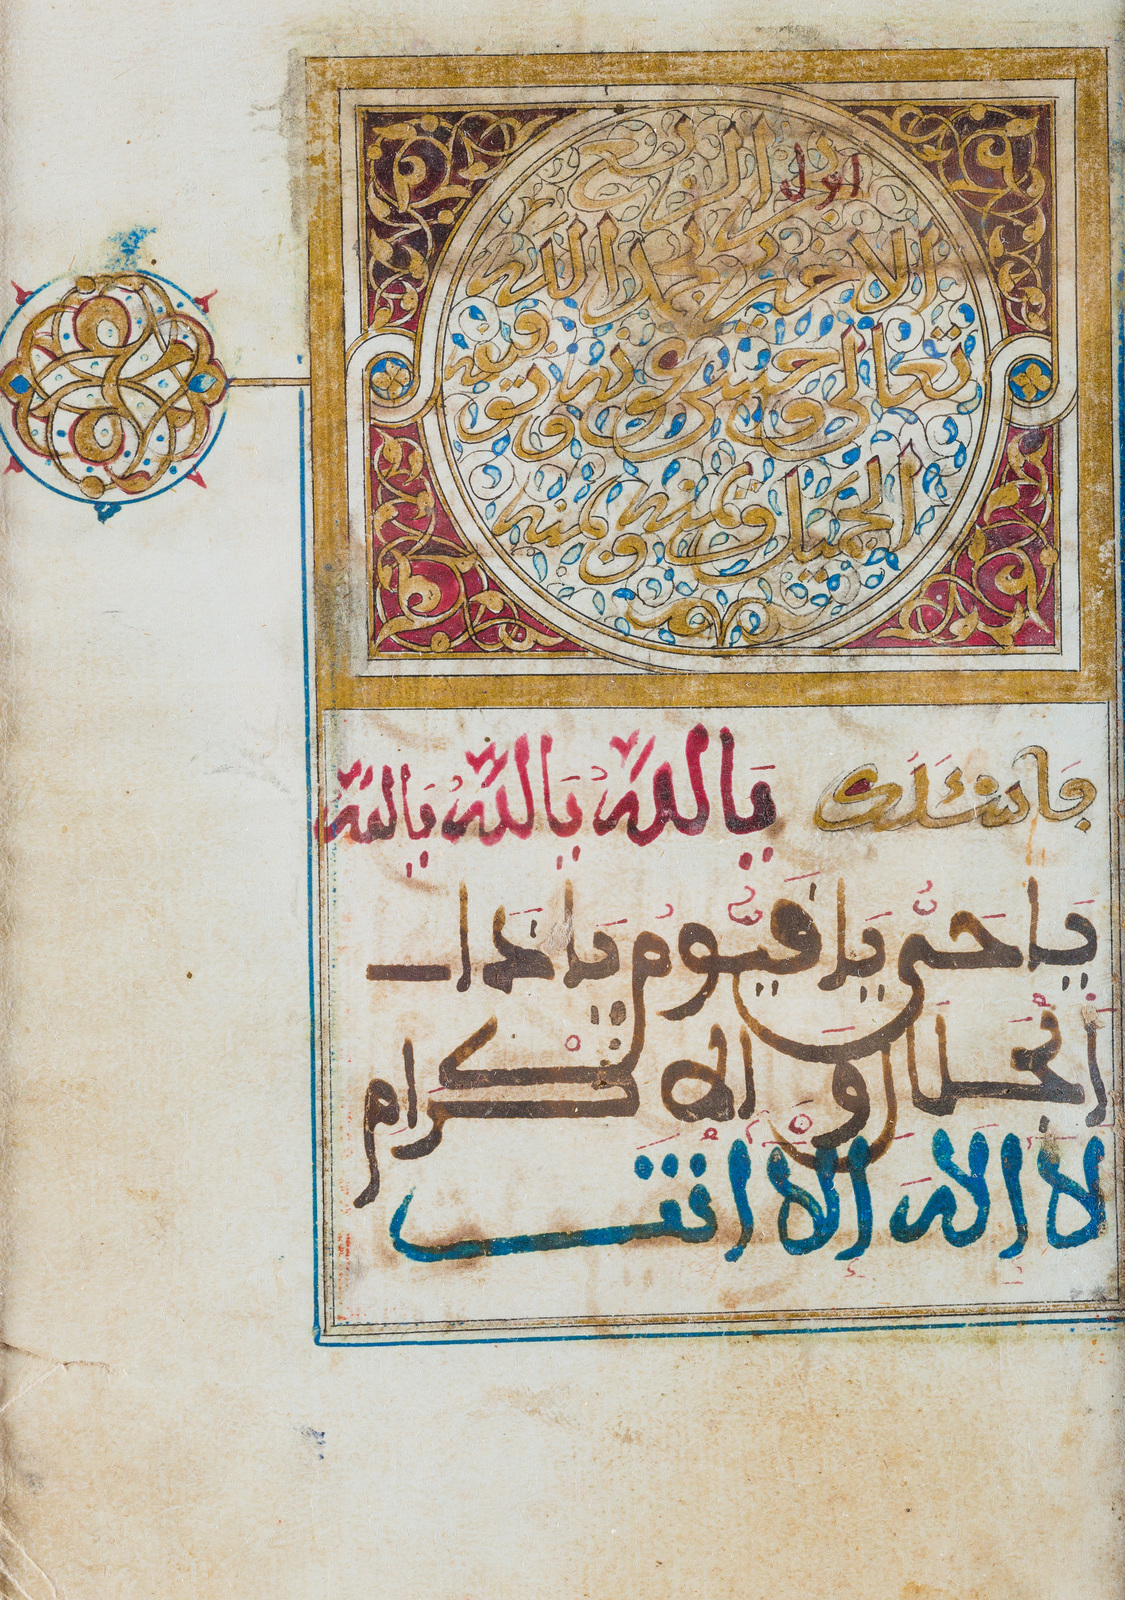 اول
الربع
الاخير بحمد الله
تعالى وحسن عونه وتوفيقه
الجميل
فَاسْئَلُكَ يَا اللَّهُ يَا اللَّهُ يَا اللَّهُ
يَا حَيُّ يَا قَيُّومُ يَا ذَا
الْجَلَالِ وَالْاكْرَامِ
لَا الَهَ الَّا انْتَ